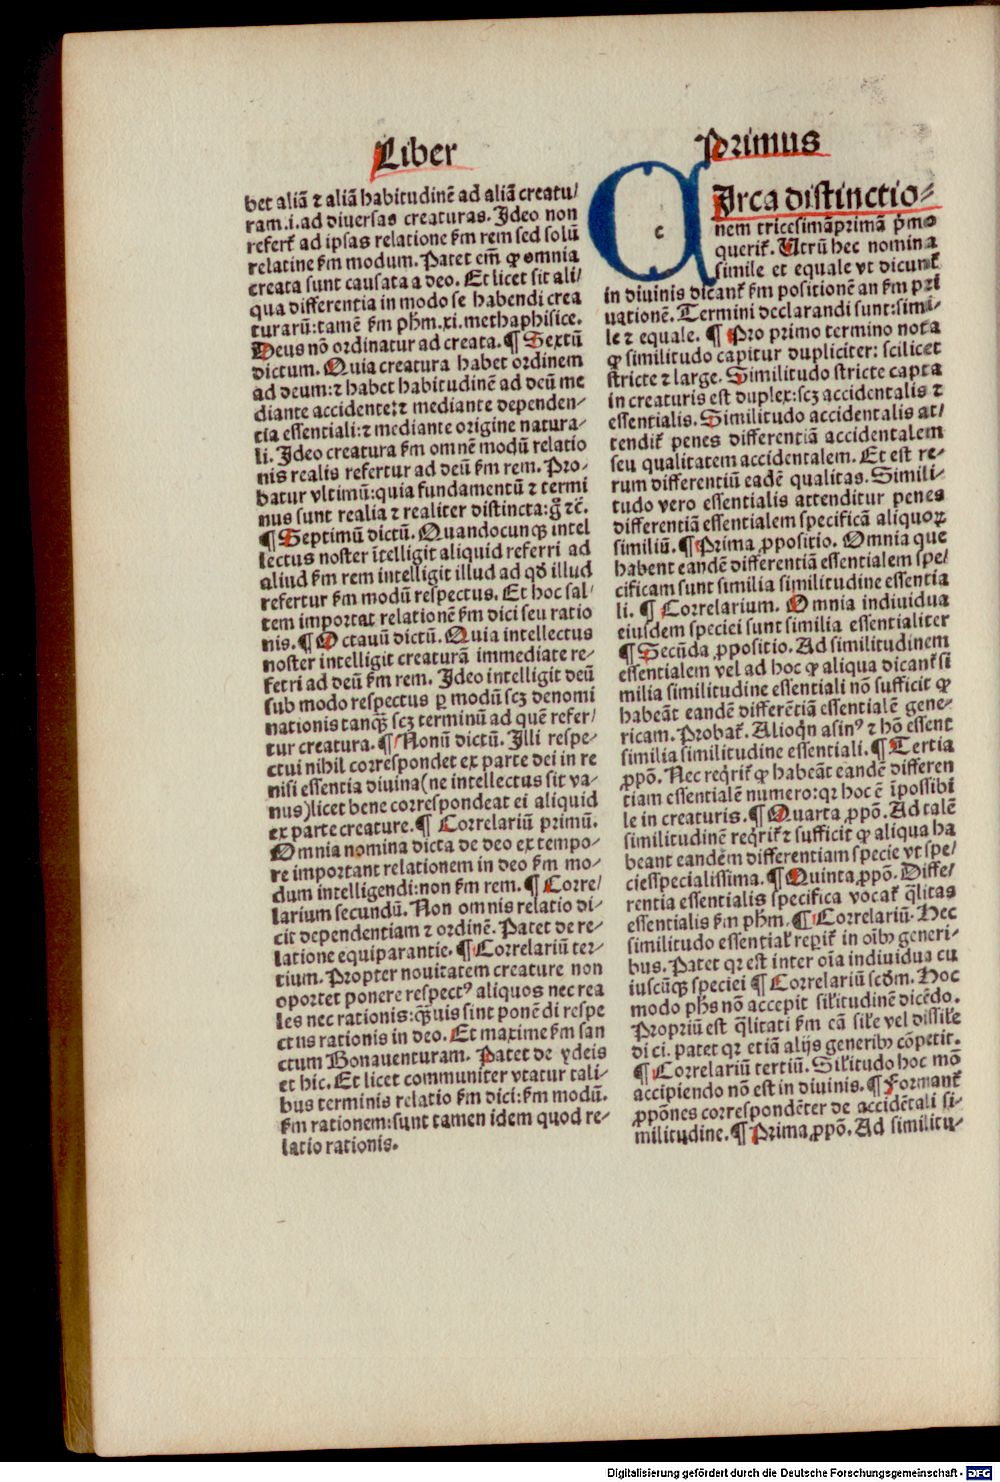 Liber
bet aliā ⁊ aliā habitudinē ad aliā creatu/
ram.i.ad diuersas creaturas. Ideo non
referť ad ipsas relatione ẜm rem sed solū
relatiue ẜm modum. Patet em̄ ꝙ omnia
creata sunt causata a deo. Et licet sit ali/
qua differentia in modo se habendi crea
turarū:tamē ẜm ph̄m.xi.methaphisice.
Deus nō ordinatur ad creata. ¶ Sextū
dictum. Quia creatura habet ordinem
ad deum:⁊ habet habitudinē ad deū me
diante accidente:⁊ mediante dependen-
tia essentiali:⁊ mediante origine natura-
li. Ideo creatura ẜm omnē modū relatio
nis realis refertur ad deū ẜm rem. Pro-
batur vltimū:quia fundamentū ⁊ termi
nus sunt realia ⁊ realiter distincta:g̊ ⁊c̄.
¶ Septimū dictū. Quandocunqꝫ intel
lectus noster ītelligit aliquid referri ad
aliud ẜm rem intelligit illud ad qd̄ illud
refertur ẜm modū respectus. Et hoc sal/
tem importat relationē ẜm dici seu ratio
nis. ¶ Octauū dictū. Quia intellectus
noster intelligit creaturā immediate re-
ferri ad deū ẜm rem. Ideo intelligit deū
sub modo respectus ꝑ modū scꝫ denomi
nationis tanqꝫ scꝫ terminū ad quē refer/
tur creatura. ¶ Nonū dictū. Illi respe-
ctui nihil correspondet ex parte dei in re
nisi essentia diuina(ne intellectus sit va-
nus)licet bene correspondeat ei aliquid
ex parte creature. ¶ Correlariū primū.
Omnia nomina dicta de deo ex tempo-
re important relationem in deo ẜm mo-
dum intelligendi:non ẜm rem. ¶ Corre/
larium secundū. Non omnis relatio di-
cit dependentiam ⁊ ordinē. Patet de re-
latione equiparantie. ¶ Correlariū ter-
tium. Propter nouitatem creature non
oportet ponere respectꝰ aliquos nec rea
les nec rationis:qꝫuis sint ponēdi respe
ctus rationis in deo. Et maxime ẜm san
ctum Bonauenturam. Patet de ydeis
et hic. Et licet communiter vtatur tali-
bus terminis relatio ẜm dici:ẜm modū.
ẜm rationem:sunt tamen idem quod re-
latio rationis.
Primus
CIrca distinctio-
nem tricesimāprimā p̄mo
queriť. Utrū hec nomina
simile et equale vt dicunť
in diuinis dicanť ẜm positionē an ẜm pri
uationē. Termini declarandi sunt:simi-
le ⁊ equale. ¶ Pro primo termino nota
ꝙ similitudo capitur dupliciter: scilicet
stricte ⁊ large. Similitudo stricte capta
in creaturis est duplex:scꝫ accidentalis ⁊
essentialis. Similitudo accidentalis at/
tendiť penes differentiā accidentalem
seu qualitatem accidentalem. Et est re-
rum differentiū eadē qualitas. Simili-
tudo vero essentialis attenditur penes
differentiā essentialem specificā aliquoꝝ
similiū. ¶ Prima ꝓpositio. Omnia que
habent eandē differentiā essentialem spe/
cificam sunt similia similitudine essentia
li. ¶ Correlarium. Omnia indiuidua
eiusdem speciei sunt similia essentialiter
¶ Secūda ꝓpositio. Ad similitudinem
essentialem vel ad hoc ꝙ aliqua dicanť si
milia similitudine essentiali nō sufficit ꝙ
habeāt eandē differētiā essentialē gene-
ricam. Probať. Alioqn̄ asinꝰ ⁊ hō essent
similia similitudine essentiali. ¶ Tertia
ꝓpō. Nec reqriť ꝙ habeāt eandē differen
tiam essentialē numero:qꝛ hoc ē īpossibi
le in creaturis. ¶ Quarta ꝓpō. Ad talē
similitudinē reqriť ⁊ sufficit ꝙ aliqua ha
beant eandem differentiam specie vt spe/
ciesspecialissima. ¶ Quinta ꝓpō. Diffe/
rentia essentialis specifica vocať q̄litas
essentialis ẜm ph̄m. ¶ Correlariū. Hec
similitudo essentiaľ reꝑiť in oībꝫ generi-
bus. Patet qꝛ est inter oīa indiuidua cu
iuscūqꝫ speciei ¶ Correlariū scd̄m. Hoc
modo ph̄s nō accepit siľitudinē dicēdo.
Propriū est q̄litati ẜm eā siľe vel dissiľe
di ci. patet qꝛ etiā alijs generibꝫ cōpetit.
¶ Correlariū tertiū. Siľitudo hoc mō
accipiendo nō est in diuinis. ¶ Formanť
ꝓpōnes correspondēter de accidētali si-
militudine. ¶ Prima ꝓpō. Ad similitu-
Digitalisierung gefördert durch die Deutsche Forschungsgemeinschaft - DFG